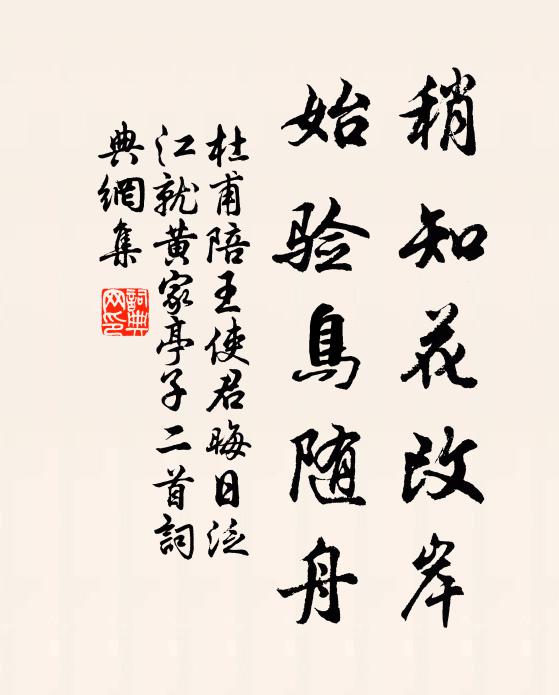 稍知花改岸
始验鳥随舟
杜甫陪王使君晦日泛
江就黄家亭子二首詞
典網集
詞典網印